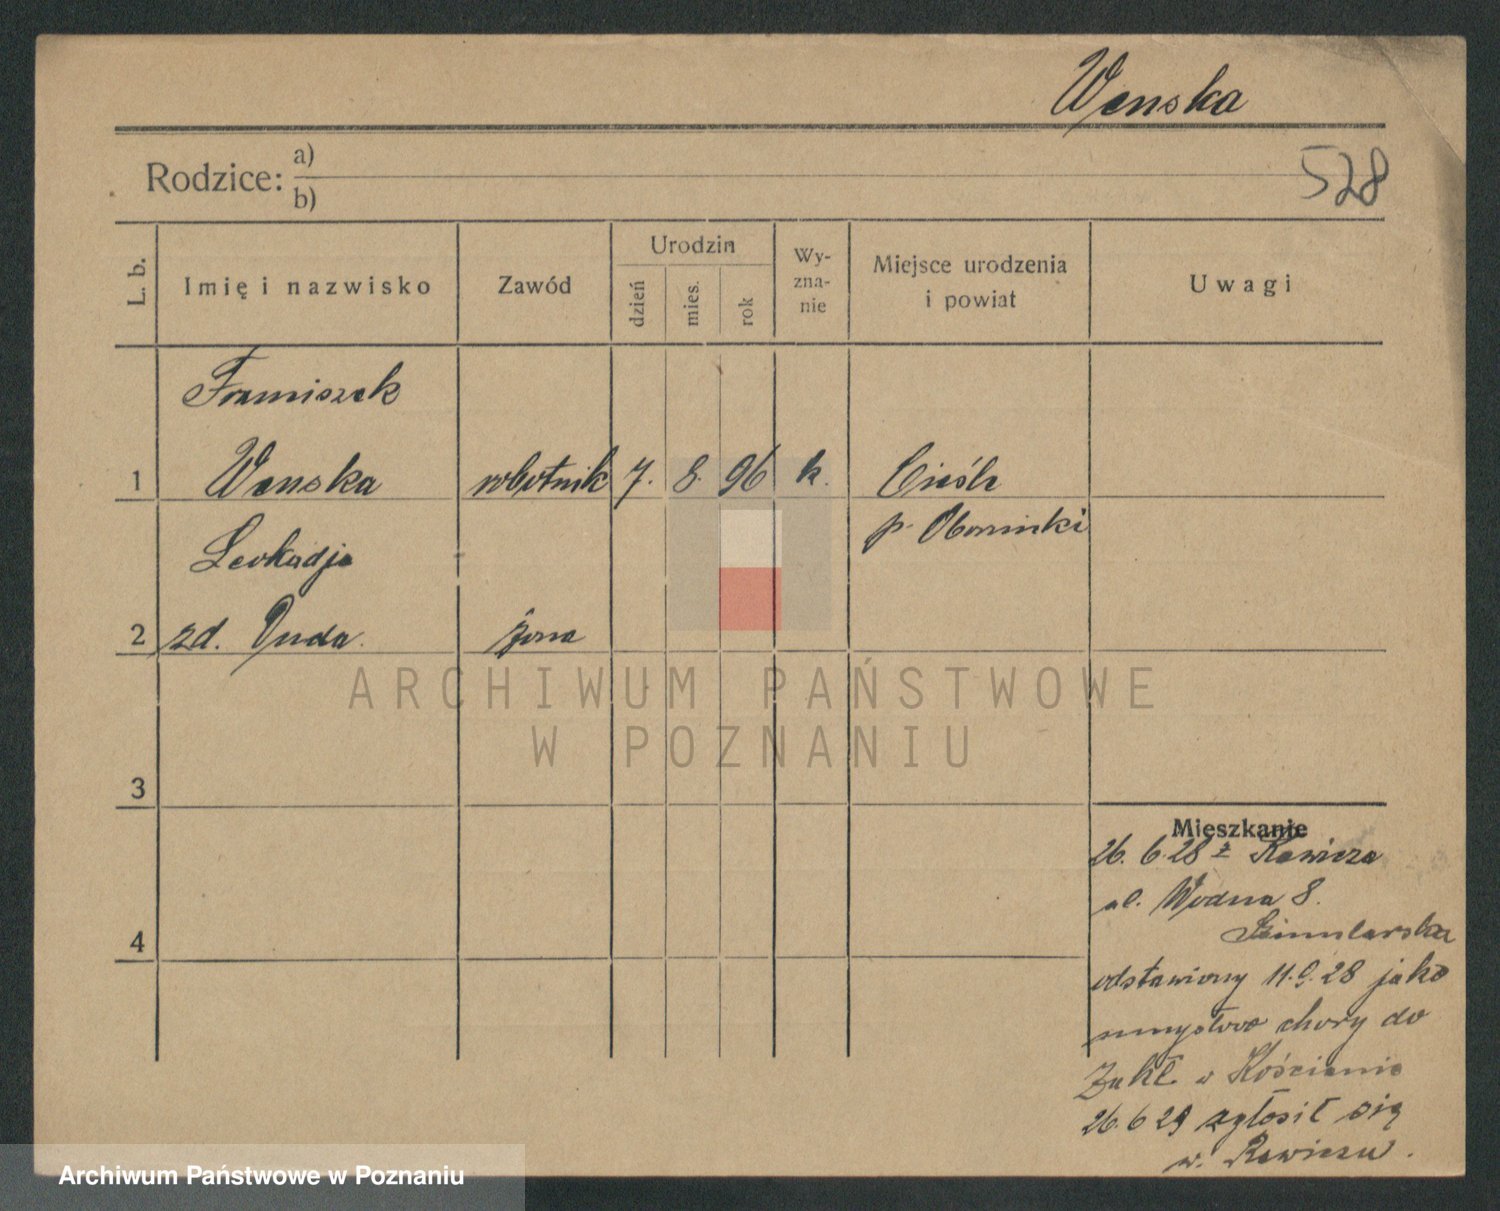 Wenska
Rodzice: a)
b)
528
L. b.
Imię i nazwisko
Zawód
Urodzin
dzień
mies.
rok
Wy-
zna-
nie
Miejsce urodzenia
i powiat
Uwagi
Franciszek
1 Wenska robotnik 7. 8. 96 k. Cieśle
p. Oborniki
Leokadja
2 zd. Duda. żona
3
4
Mieszkanie
26. 6. 28 z Rawicza
ul. Wodna 8.
odstawiony 11.9.28 jako
umysłowo chory do
Zakł. w Kościanie
26. 6 29 zgłosił się
w. Rawiczu.
ARCHIWUM PAŃSTWOWE
W POZNANIU
Archiwum Państwowe w Poznaniu